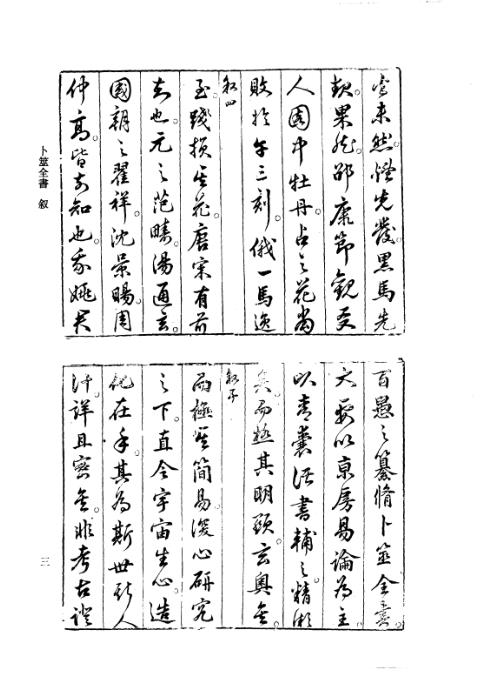 未然。煙先發黑馬先
起果然。邵康節觀友
人園中牡丹。占之花當
敗於午三刻。俄一馬逸
至。踐損其花。唐宋有前
知也。元之范疇。湯通玄。
國朝之翟祥。沈景暘。周
仲高。皆前知也。我姚君
百愚之纂脩卜筮全書。
大要以京房易論為主。
以青囊諸書輔之。精微
矣。而極其明顯。玄奧矣。
而極其簡易。復心研究
之下。直令宇宙生心。造
化在手。其為斯世斯人
計。詳且密矣。非考古證
卜筮全書 叙
三